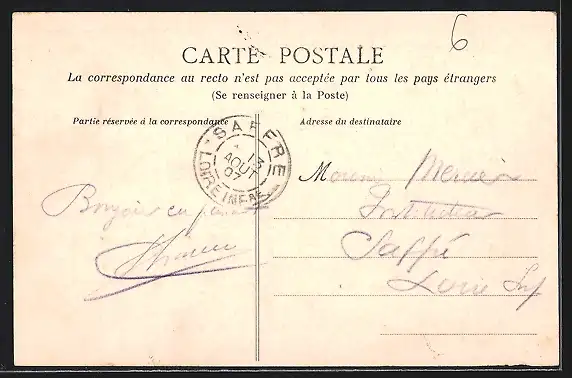 6
CARTE POSTALE
La correspondance au recto n'est pas acceptée par tous les pays étrangers
(Se renseigner à la Poste)
Partie réservée à la correspondance
Adresse du destinataire
SAFFRÉ
13
AOUT
07
LOIRE INFRE
Monsieur Mercier
Instituteur
Saffré
Loire Inf
Bonjour en